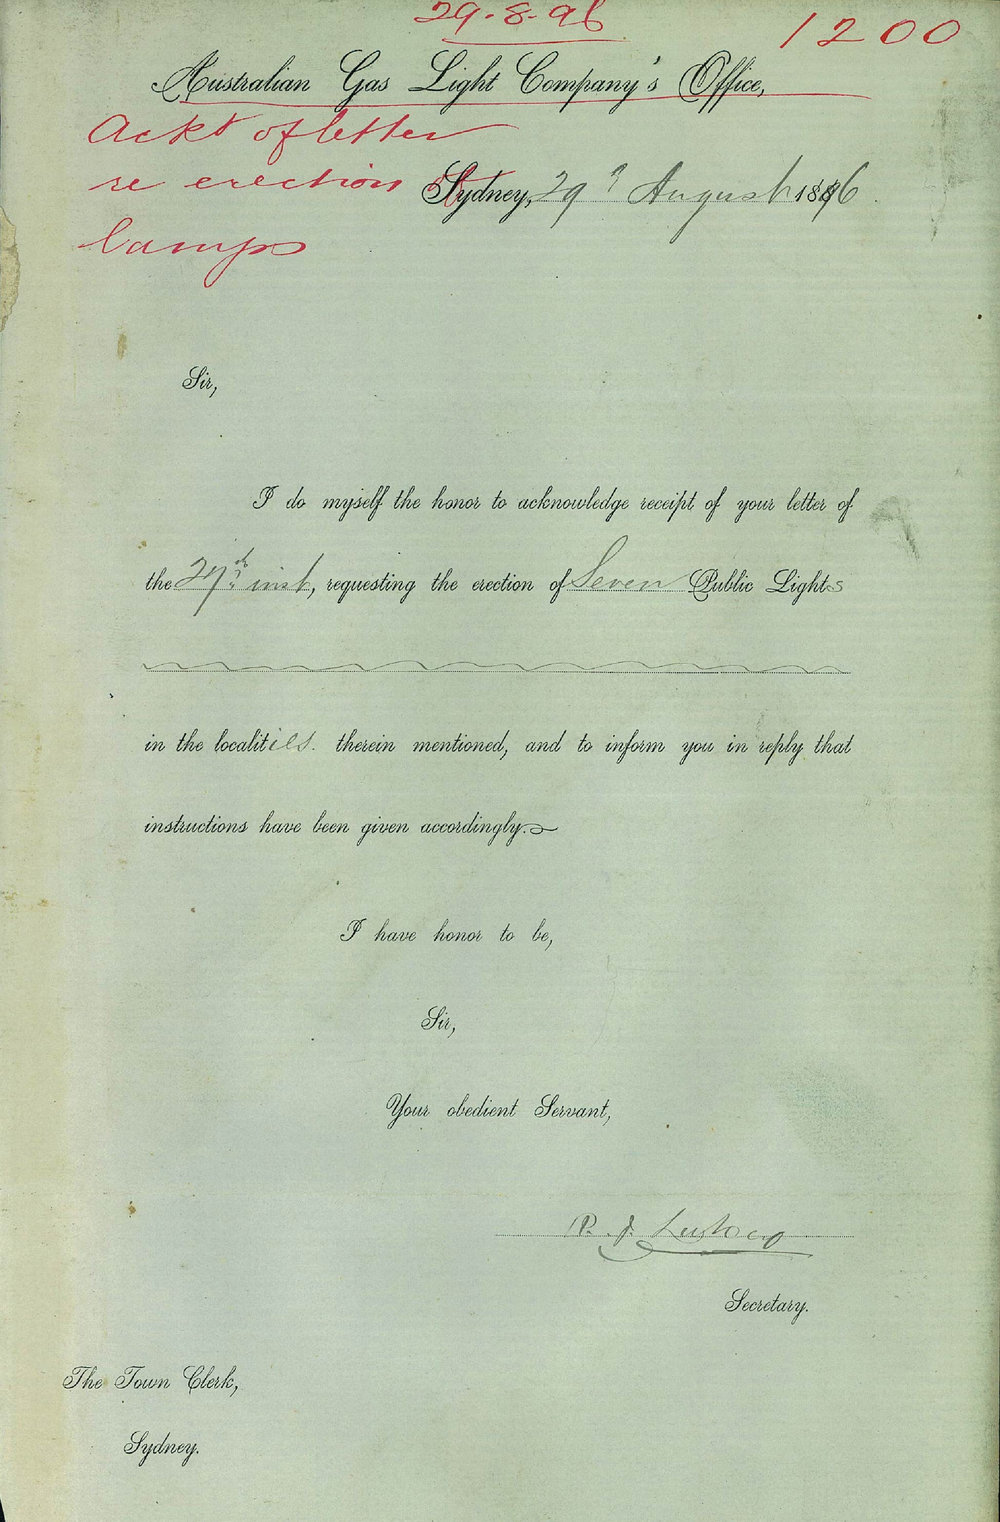 29.8.96
1200
Australian Gas Light Company's Office,
Ackt of letter
re erection of
lamps
Sydney, 29th August 1896.
Sir,
I do myself the honor to acknowledge receipt of your letter of
the 27th inst, requesting the erection of Seven Public Lights
in the localities. therein mentioned, and to inform you in reply that
instructions have been given accordingly.
I have honor to be,
Sir,
Your obedient Servant,
R. J.
Secretary.
The Town Clerk,
Sydney.